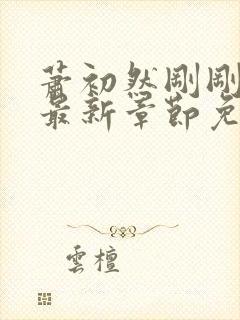 蕭初然剛剛
最新章節免
雲檀